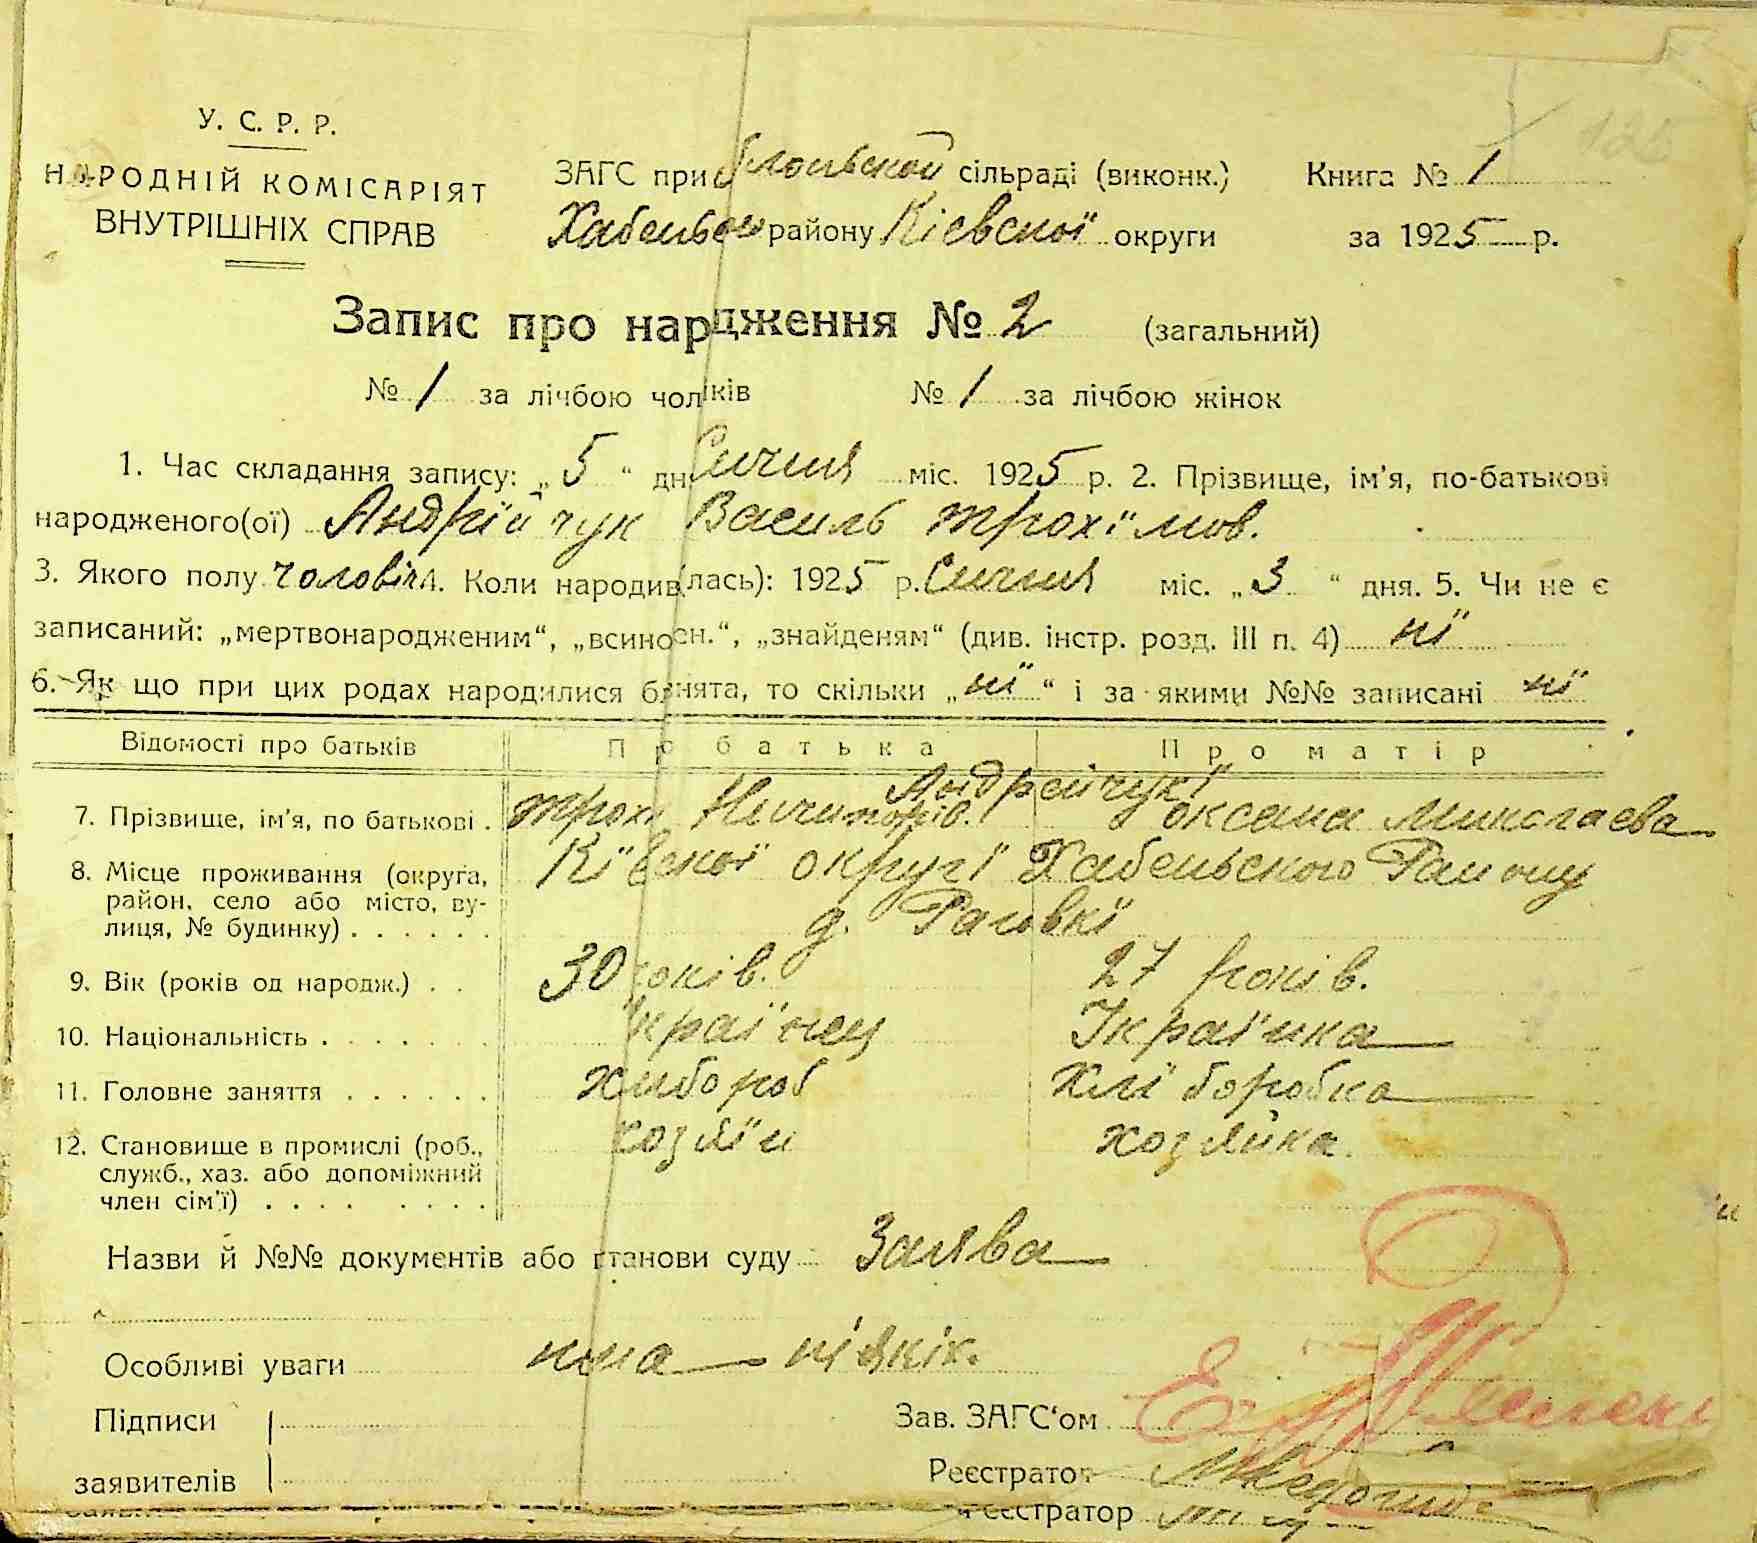 У. С. Р. Р.
НАРОДНІЙ КОМІСАРІЯТ
ВНУТРІШНІХ СПРАВ
ЗАГС при сільраді (виконк.)
Книга № 1
району Кіевскої округи
за 1925 р.
Запис про нардження № 2 (загальний)
№ 1 за лічбою чоліків № 1 за лічбою жінок
1. Час складання запису: „5“ дн Сичня міс. 1925 р. 2. Прізвище, ім'я, по-батькові
народженого(ої) Андрійчук Василь Трохімов.
3. Якого полу чоловіч 4. Коли народив(лась): 1925 р. Сичня міс. „3“ дня. 5. Чи не є
записаний: „мертвонародженим“, „всиноен.“, „знайденям“ (див. інстр. розд. III п. 4) ні
6. Як що при цих родах народилися бзнята, то скільки „ні“ і за якими №№ записані ні
Відомості про батьків Про батька Про матір
Андрейчукі
7. Прізвище, ім'я, по батькові . Трох Ничипорів. Оксана Миколаева
8. Місце проживання (округа, район, село або місто, вулиця, № будинку) . . . . . . Кіівскої округі Хабеньского Раиону
д. Раговкі
9. Вік (років од народж.) . . 30 років. 27 років.
10. Національність . . . . . . . країнец Україінка
11. Головне заняття . . . . . . хлибороб хліборобка
12. Становище в промислі (роб., служб., хаз. або допоміжний член сім'ї) . . . . . . . . хозяїн хозяйка.
Назви й №№ документів або станови суду Заява
Особливі уваги нема ніякіх.
Підписи
заявителів
Зав. ЗАГС'ом
Реєстратор
Реєстратор